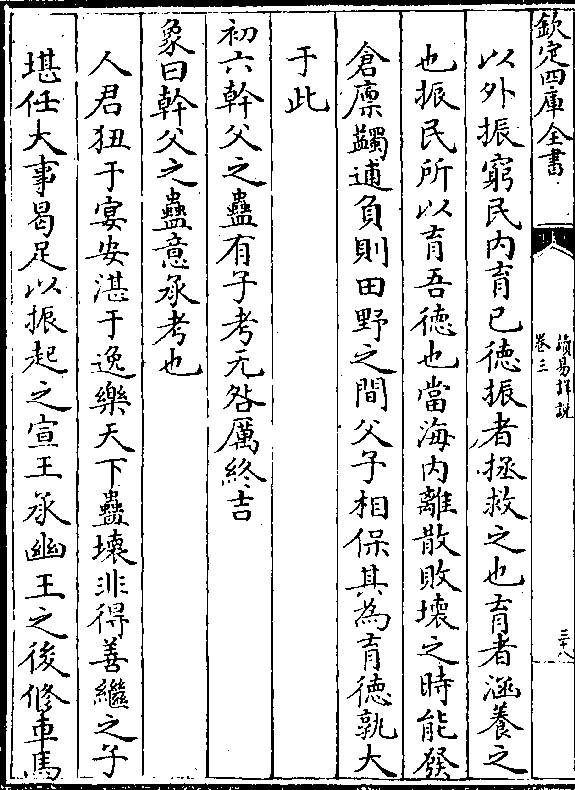 欽定四庫全書
讀易詳說
卷三
三十八
以外振窮民内育已德振者拯救之也育者涵養之
也振民所以育吾德也當海内離散敗壞之時能發
倉廪蠲逋負則田野之間父子相保其為育德孰大
于此
初六幹父之蠱有子考无咎厲終吉
象曰幹父之蠱意承考也
人君狃于宴安湛于逸樂天下蠱壞非得善繼之子
堪任大事曷足以振起之宣王承幽王之後修車馬